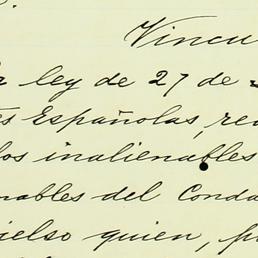 Vincu
ley de 27 de
Españolas, re
los inalienables
nables del Conda
ielso quien, p